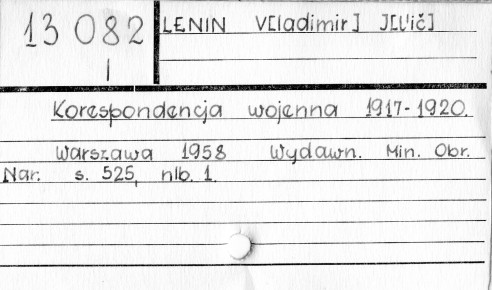 13 082
I
LENIN V[ladimir] J[l'ič]
Korespondencja wojenna 1917-1920.
Warszawa 1958 Wydawn. Min. Obr.
Nar. s. 525, nlb. 1.